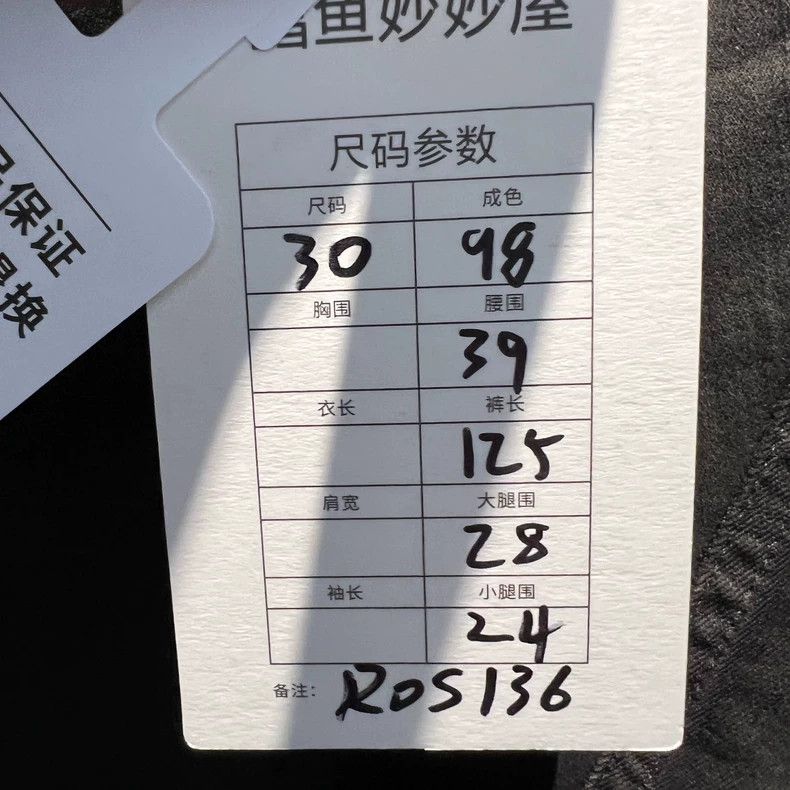 鱼妙妙屋
保证
换
尺码参数
尺码 成色
30 98
胸围 腰围
39
衣长 裤长
125
肩宽 大腿围
28
袖长 小腿围
24
备注: ROS136